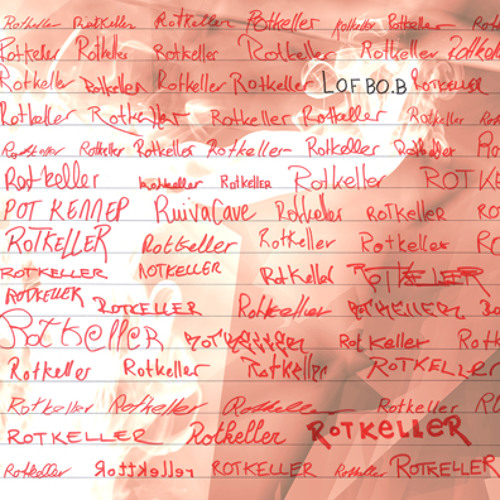 Rotkeller Rotkeller Rotkeller Rotkeller Rotkeller Rotkeller
Rotkeller Rotkeller Rotkeller Rotkeller Rotkeller
Rotkeller Rotkeller Rotkeller Rotkeller LOFBO.B Rotkeller
Rotkeller Rotkeller Rotkeller Rotkeller Rotkeller
Rotkeller Rotkeller Rotkeller Rotkeller Rotkeller Rotkeller
Rotkeller Rotkeller Rotkeller Rotkeller
POT KEППEP RuivaCave Rotkeller ROTKELLER
ROTKELLER Rotkeller Rotkeller Rotkeller
ROTKELLER ROTKELLER RotKeller ROTKELLER
ROTKELLER ROTKELLER Rotkeller ROTKELLER
Rotkeller ROTKELLER Rotkeller
Rotkeller Rotkeller Rotkeller ROTKELLER
Rotkeller Rotkeller Rotkeller Rotkeller
ROTKELLER Rotkeller ROTKELLER
Rotkeller Rotkeller ROTKELLER Rotkeller ROTKELLER